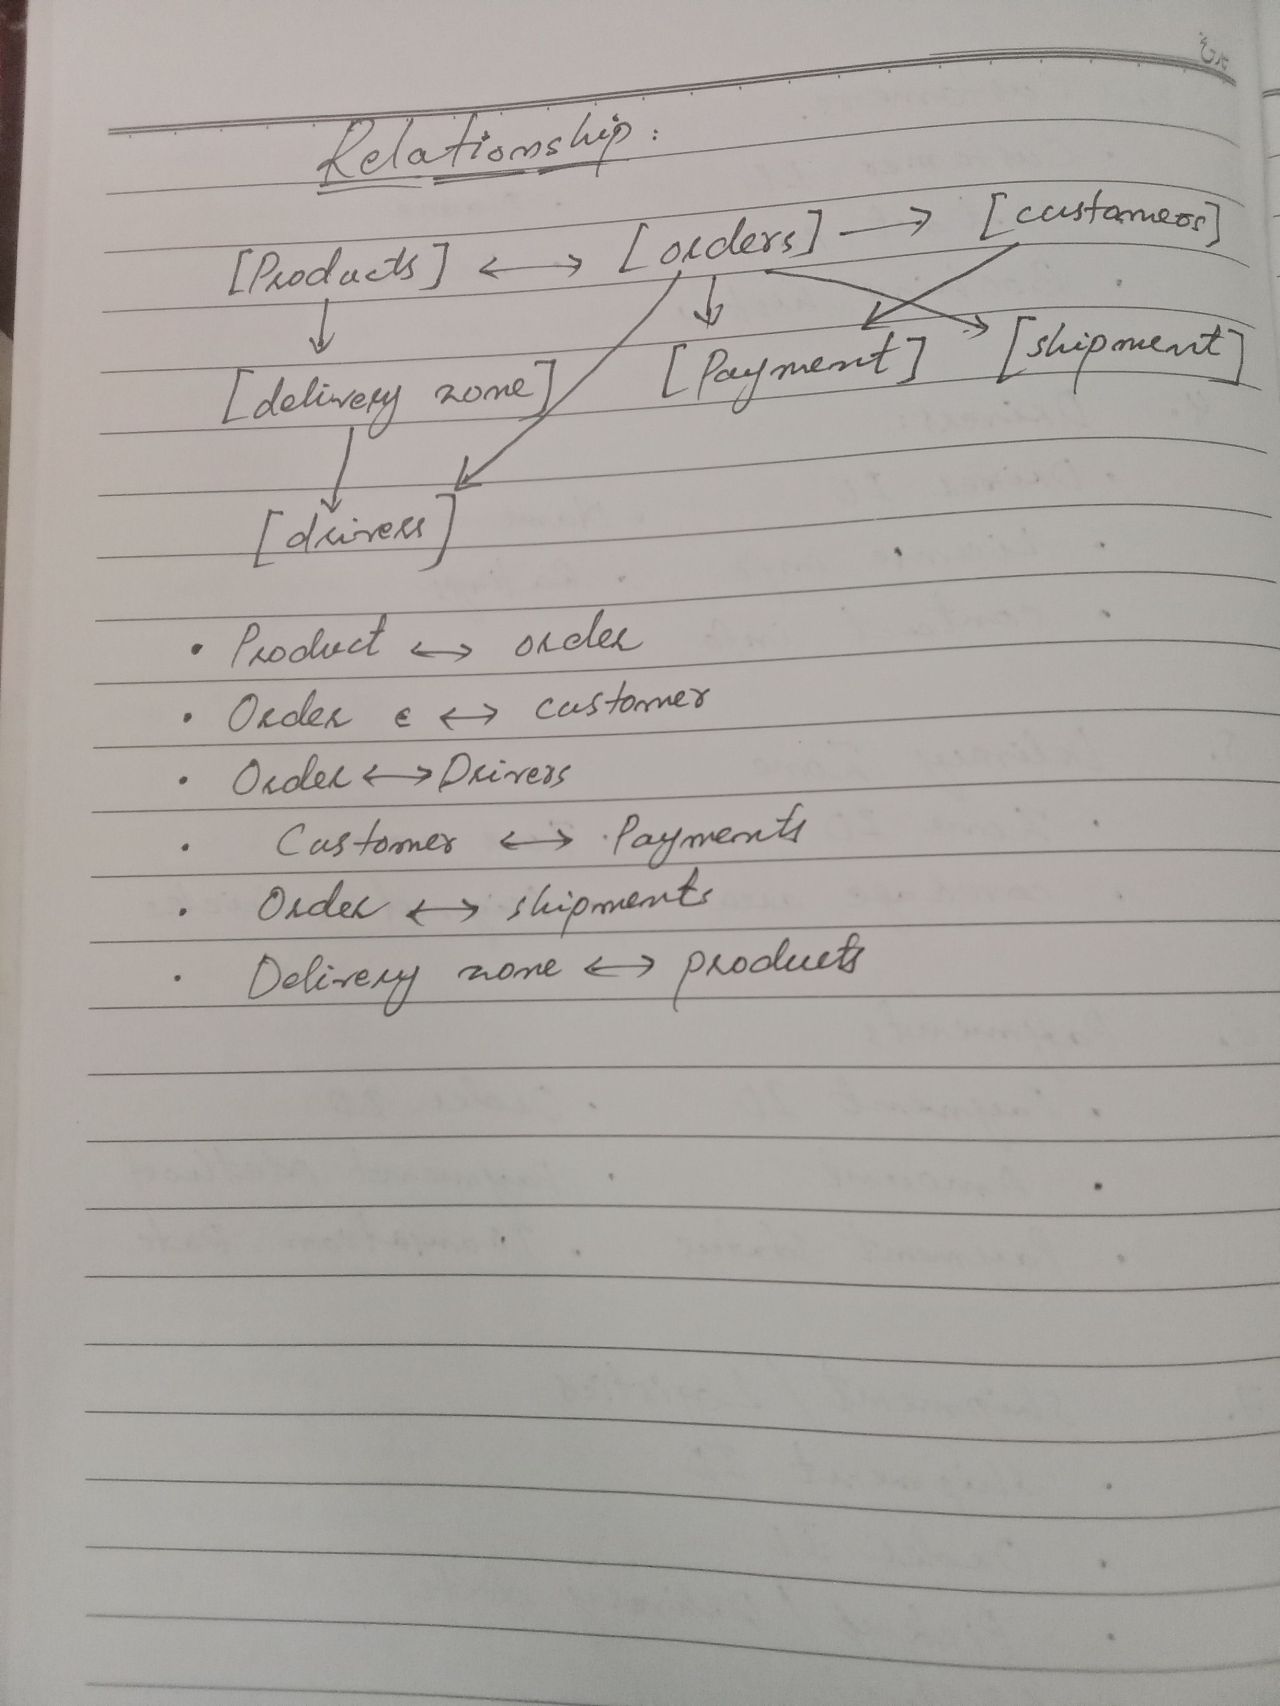 Relationship:
[Products] ↔ [orders] → [customers]
[delivery zone] [Payment] [shipment]
[drivers]
• Product ↔ order
• Order e ↔ customer
• Order ↔ Drivers
• Customer ↔ Payments
• Order ↔ shipments
• Delivery zone ↔ products